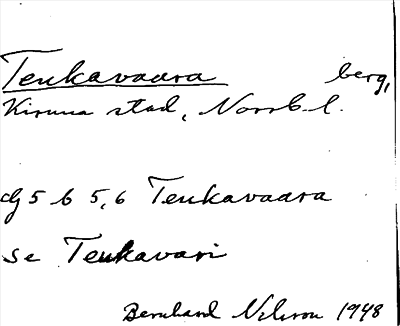 Teukavaara berg,
Kiruna stad, Norrb. l.
dg 5 b 5,6 Teukavaara
se Teukavari
Bernhard Nilsson 1948